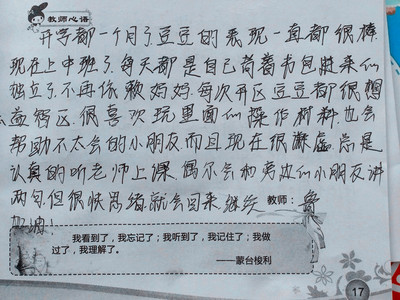 教师心语
开学都一个月了豆豆的表现一直都很棒
现在上中班了每天都是自己背着书包进来们
独立了不再依赖妈妈每次开区豆豆都很想
益智区很喜欢玩里面的操作材料也会
帮助不太会的小朋友而且现在很谦虚总是
认真的听老师上课偶尔会和旁边的小朋友讲
两句但很快思绪就会回来继续 教师:
加油!
我看到了,我忘记了;我听到了,我记住了;我做
过了,我理解了。
——蒙台梭利
17